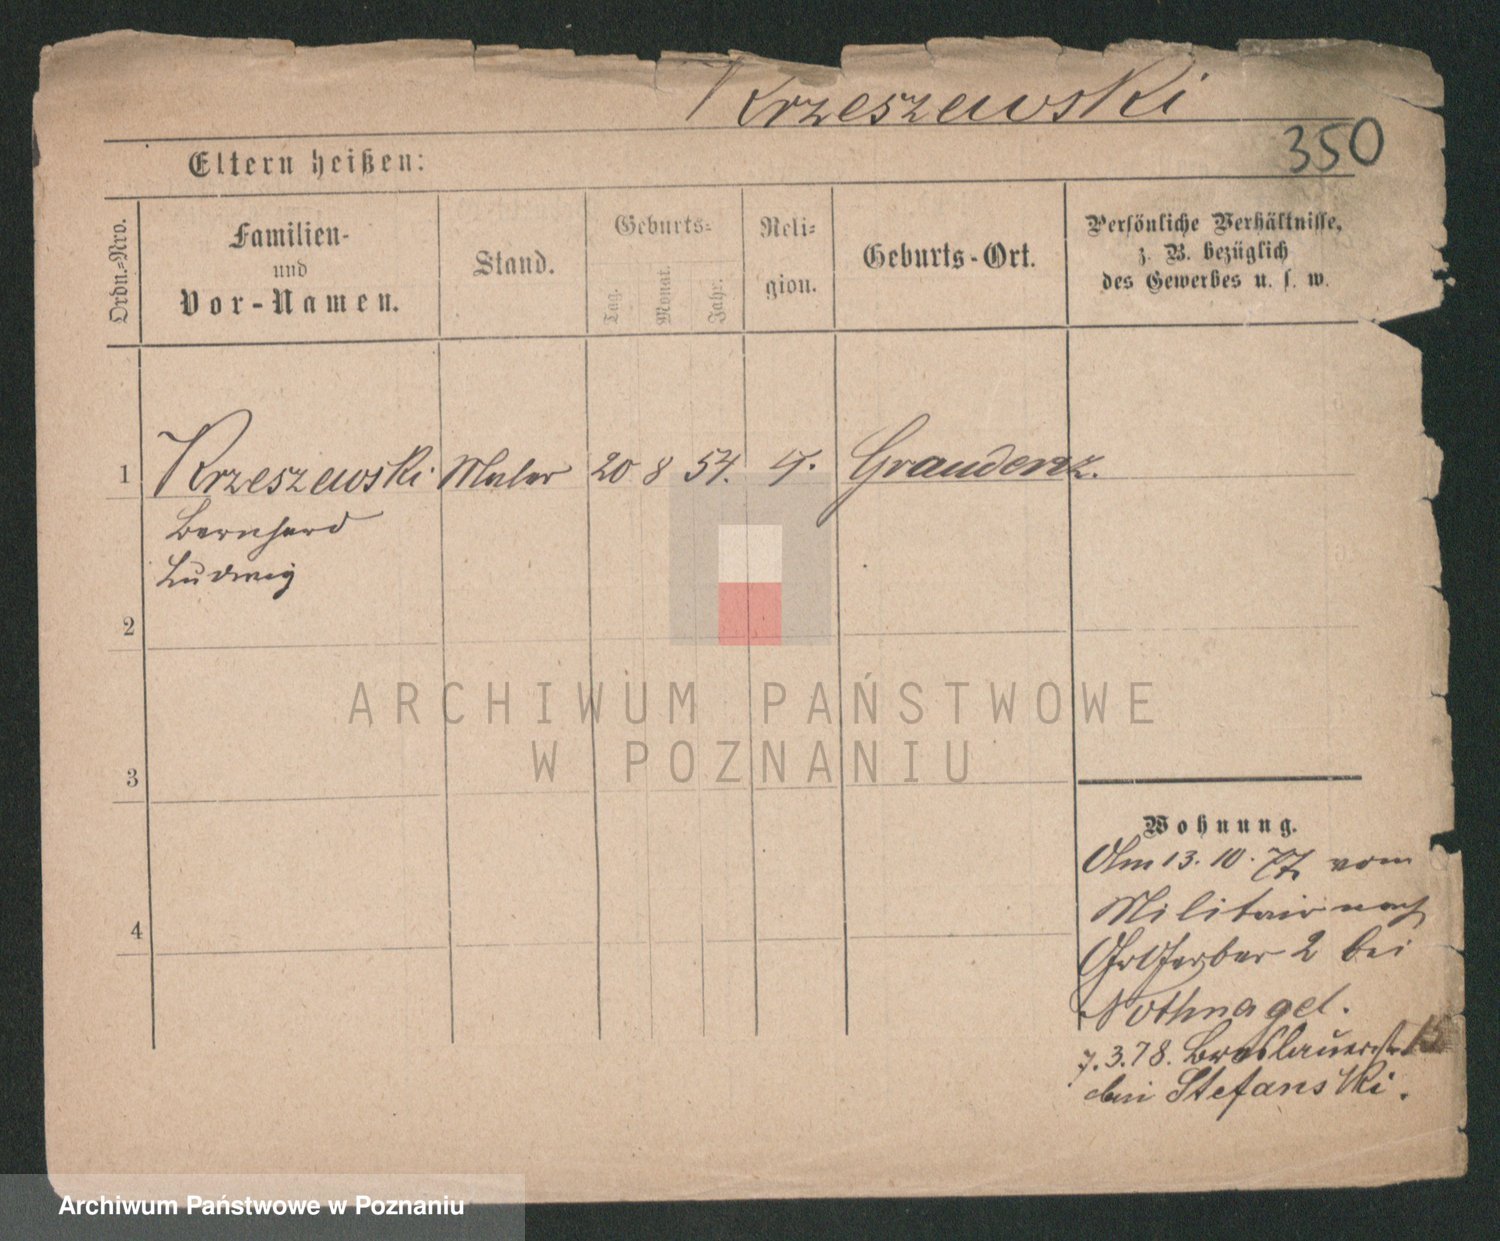 Krzeszewski
350
Eltern heißen:
Ordn.=Nro.
Familien-
und
Vor-Namen.
Stand.
Geburts=
Tag.
Monat.
Jahr.
Reli=
gion.
Geburts-Ort.
Persönliche Verhältnisse,
z. B. bezüglich
des Gewerbes u. s. w.
1 Krzeszewski Maler 20 8 54. Graudenz.
Bernhard
Ludwig
2
3
4
ARCHIWUM PAŃSTWOWE
W POZNANIU
Wohnung.
Am 13. 10. 77 vom
Militair nach
Gr Gerber 2 bei
Nothnagel.
7.3.78. Breslauerstr 15
bei Stefanski.
Archiwum Państwowe w Poznaniu